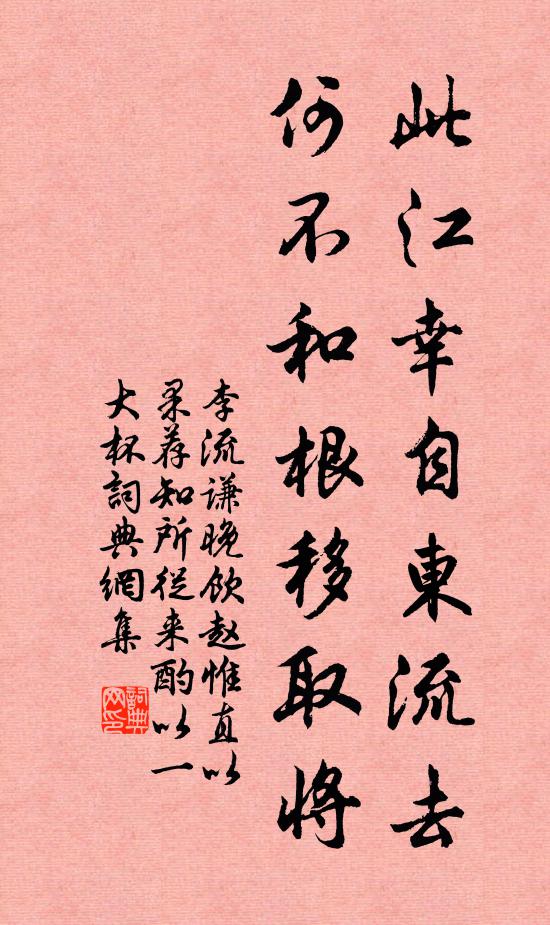 此江幸自東流去
何不和根移取將
李流谦晚饮赵惟直以
果荐知所從来酌以一
大杯詞典網集
詞典网印